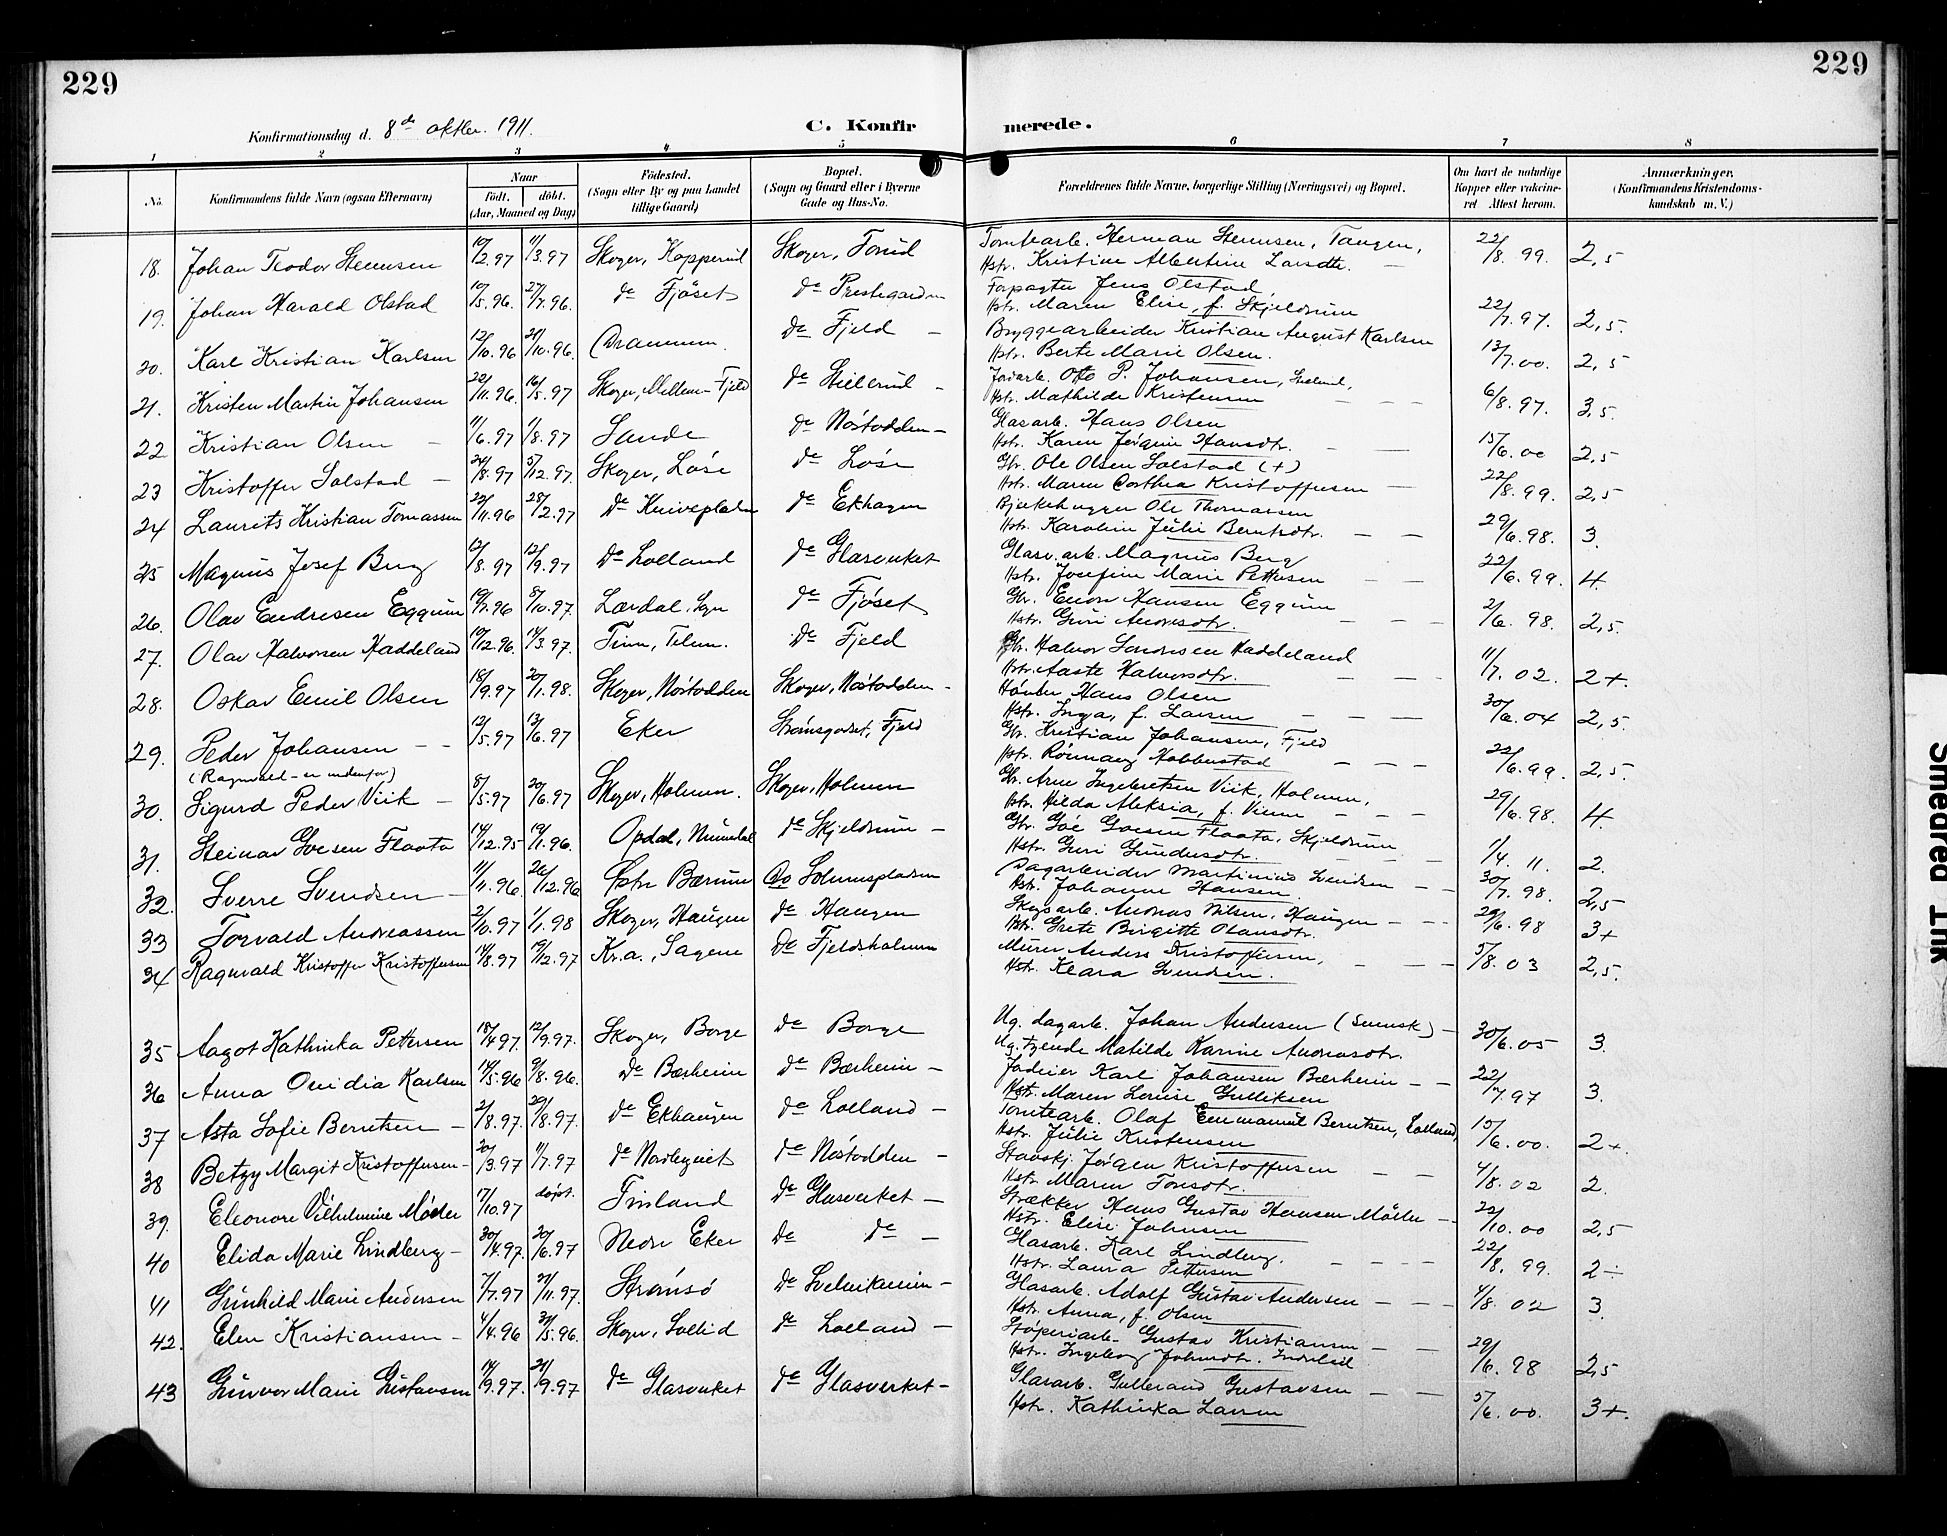 229
229
Konfirmationsdag d. 8de oktbr. 1911.
C. Konfir
merede.
1 2 3 4 5 6 7 8
No.
Konfirmandens fulde Navn (ogsaa Efternavn)
Naar
født. døbt.
(Aar, Maaned og Dag)
Fødested.
(Sogn eller By og paa Landet tillige Gaard)
Bopæl.
(Sogn og Gaard eller i Byerne Gade og Hus-No.
Forældrenes fulde Navne, borgerlige Stilling (Næringsvei) og Bopæl.
Om havt de naturlige Kopper eller vaccineret Attest herom.
Anmerkninger.
(Konfirmandens Kristendomskundskab m. V.)
18. Johan Teodor Stennsen 10/2.97 11/3.97 Skoger, Kopperud Skoger, Torud Tomtearb. Herman Stennsen, Tangen, 22/8.99. 2,5
Hstr. Kristine Albertine Larsdtr.
19. Johan Harald Olstad 10/5.96. 27/7.96. do Fjøset do Prestegarden Forpagter Jens Olstad 22/7.97. 2,5.
Hstr. Maren Elise, f. Skjeldrum
20. Karl Kristian Karlsen 12/10.96 21/10.96. Drammen. do Fjeld Bryggearbeider Kristian August Karlsen 13/7.00. 2,5
Hstr. Berte Marie Olsen.
21. Kristen Martin Johansen 22/11.96. 16/5.97 Skoger, Mellem-Fjeld do Stillerud Jordarb. Otto P. Johansen, 6/8.97. 3,5.
Hstr. Mathilde Kristensen
22 Kristian Olsen 11/6.97 1/8.97 Sande do Nøstodden Glasarb. Hans Olsen 15/6.00 2,5
Hstr. Karen Jørgine Hansdtr.
23 Kristoffer Solstad 24/8.97 5/12.97 Skoger, Løse do Løse Gbr. Ole Olsen Solstad (+) 22/8.99. 2,5
Hstr. Maren Dorthea Kristoffersen
24 Laurits Kristian Tomassen 22/11.96 28/2.97 do Kniveplads do Ekhagen Bjelkehugger Ole Thomassen 29/6.98. 3.
Hstr. Karoline Julie Berntsdtr.
25 Magnus Josef Berg 12/8.97 12/9.97 do Lolland do Glasverket Glasv.arb. Magnus Berg 22/6.99. 4.
Hstr. Josefine Marie Pettersen
26. Olav Endresen Eggum 19/7.96 5/10.97. Lærdal, Sogn do Fjøset Gbr. Endre Hansen Eggum 2/6.98. 2,5.
Hstr. Guri Andresdtr.
27. Olav Halvorsen Haddeland 10/12.96. 14/3.97. Tinn, Telem. do Fjeld Gbr. Halvor Sondresen Haddeland 11/7.02. 2+.
Hstr. Aaste Halvorsdtr.
28. Oskar Emil Olsen 18/9.97 20/1.98. Skoger, Nøstodden Skoger, Nøstodden Hans Olsen 30/6.04 2,5.
Hstr. Inga, f. Larsen
29. Peder Johansen 12/5.97 13/6.97 Eker Strømsgodset, Fjeld Gbr. Kristian Johansen, Fjeld 22/6.99. 2,5.
(Ragnvald - er nedenfor) Hstr. Rønnaug Hobbestad
30. Sigurd Peder Viik 8/5.97 20/6.97 Skoger, Holmen. Skoger, Holmen Gbr. Arne Ingebretsen Viik, Holmen, 29/6.98. 4.
Hstr. Hilda Aleksia, f. Viem
31. Steinar Goesen Flaata 14/12.95 19/1.96. Opdal, Numedal do Skjeldrum Gbr. Goe Goesen Flaata, Skjeldrum 1/4.11. 2.
Hstr. Guri Gundersdtr.
32. Sverre Svendsen 11/11.96. 26/12.96 Østre Bærum do Solumspladsen Dagarbeider Martinius Svendsen 30/7.98. 2,5
Hstr. Johanne Hansen
33 Torvald Andreassen 2/10.97 1/1.98 Skoger, Haugen do Haugen Skogsarb. Andreas Nilsen, Haugen 29/6.98 3+
Hstr. Grete Birgitte Olausdtr.
34 Ragnvald Kristoffer Kristoffersen 14/8.97 19/12.97 Kr.a., Sagene do Fjeldsholmen Murer Anders Kristoffersen, 5/8.03 2,5.
Hstr. Klara Svendsen.
35 Aagot Kathinka Pettersen 18/4.97. 12/9.97. Skoger, Borge do Borge Ug. dagarb. Johan Andersen (Svensk) 30/6.05 3.
Ug. tjende Matilde Karine Andreasdtr.
36 Anna Ovidia Karlsen 14/5.96 9/8.96. do Bærheim do Bærheim Jordeier Karl Johansen Bærheim 22/7.97 3.
Hstr. Maren Lovise Gulliksen
37 Asta Sofie Berntsen 2/8.97. 29/8.97. do Ekhaugen do Lolland Tomtearb. Olaf Emmanuel Berntsen, Lolland, 10/6.00. 2+.
Hstr. Julie Kristensen
38 Betzy Margit Kristoffersen 20/3.97 11/7.97 do Nordbyeiet do Nøstodden Stavskj. Jørgen Kristoffersen 4/8.02 2.
Hstr. Maren Toresdtr.
39. Eleonore Vilhelmine Møller 17/10.97 døpt. Finland do Glasverket Strækker Hans Gustav Hansen Møller 22/10.00 2,5
Hstr. Elise Johnsen
40 Elida Marie Lindberg 30/4.97. 20/6.97 Nedre Eker do do Glasarb. Karl Lindberg. 22/8.99. 2÷
Hstr. Laura Pettersen
41 Gunhild Marie Andersen 7/7.97 21/11.97. Strømsø do Svelvikveien Glasarb. Adolf Gustav Andersen 4/8.02 3.
Hstr. Anna, f. Olsen
42. Elen Kristiansen 4/4.96 31/5.96. Skoger, Sollid do Lolland Støperiarb. Gustav Kristiansen 29/6.98 2,5
Hstr. Ingeborg Johnsdtr.
43 Gunvor Marie Gustavsen 14/9.97. 21/9.97 do Glasverket do Glasverket Glasarb. Gullerand Gustavsen 5/6.00. 3+.
Hstr. Kathinka Larsen
Smedrød Ihk